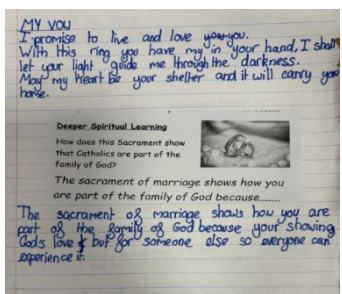 MY VOW
I promise to live and love you.
With this ring you have my in your hand, I shall
let your light guide me through the darkness.
May my heart be your shelter and it will carry you
home.
Deeper Spiritual Learning
How does this Sacrament show
that Catholics are part of the
family of God?
The sacrament of marriage shows how you
are part of the family of God because.......
The sacrament of marriage shows how you are
part of the family of God because your showing
Gods love but for someone else so everyone can
experience it.